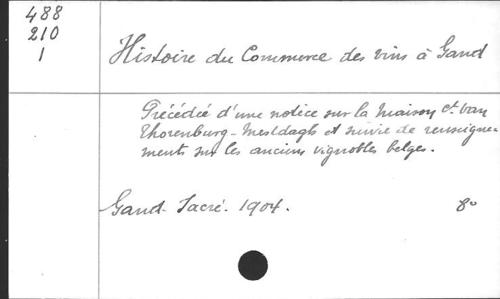 488
210
1
Histoire du Commerce des vins à Gand
Précédée d'une notice sur la Maison Ct. van
Thorenburg-Mestdagh et suivie de renseigne-
ments sur les anciens vignobles belges.
Gand. Sacré. 1904. 8º